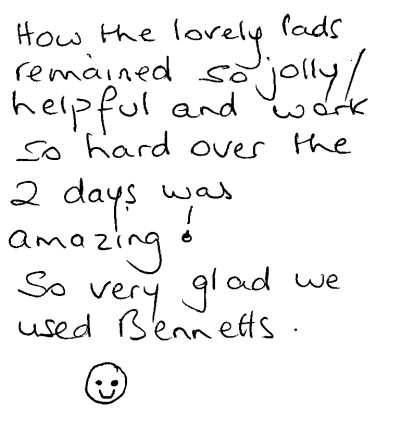 How the lovely lads
remained so jolly/
helpful and work
so hard over the
2 days was
amazing!
So very glad we
used Bennetts.